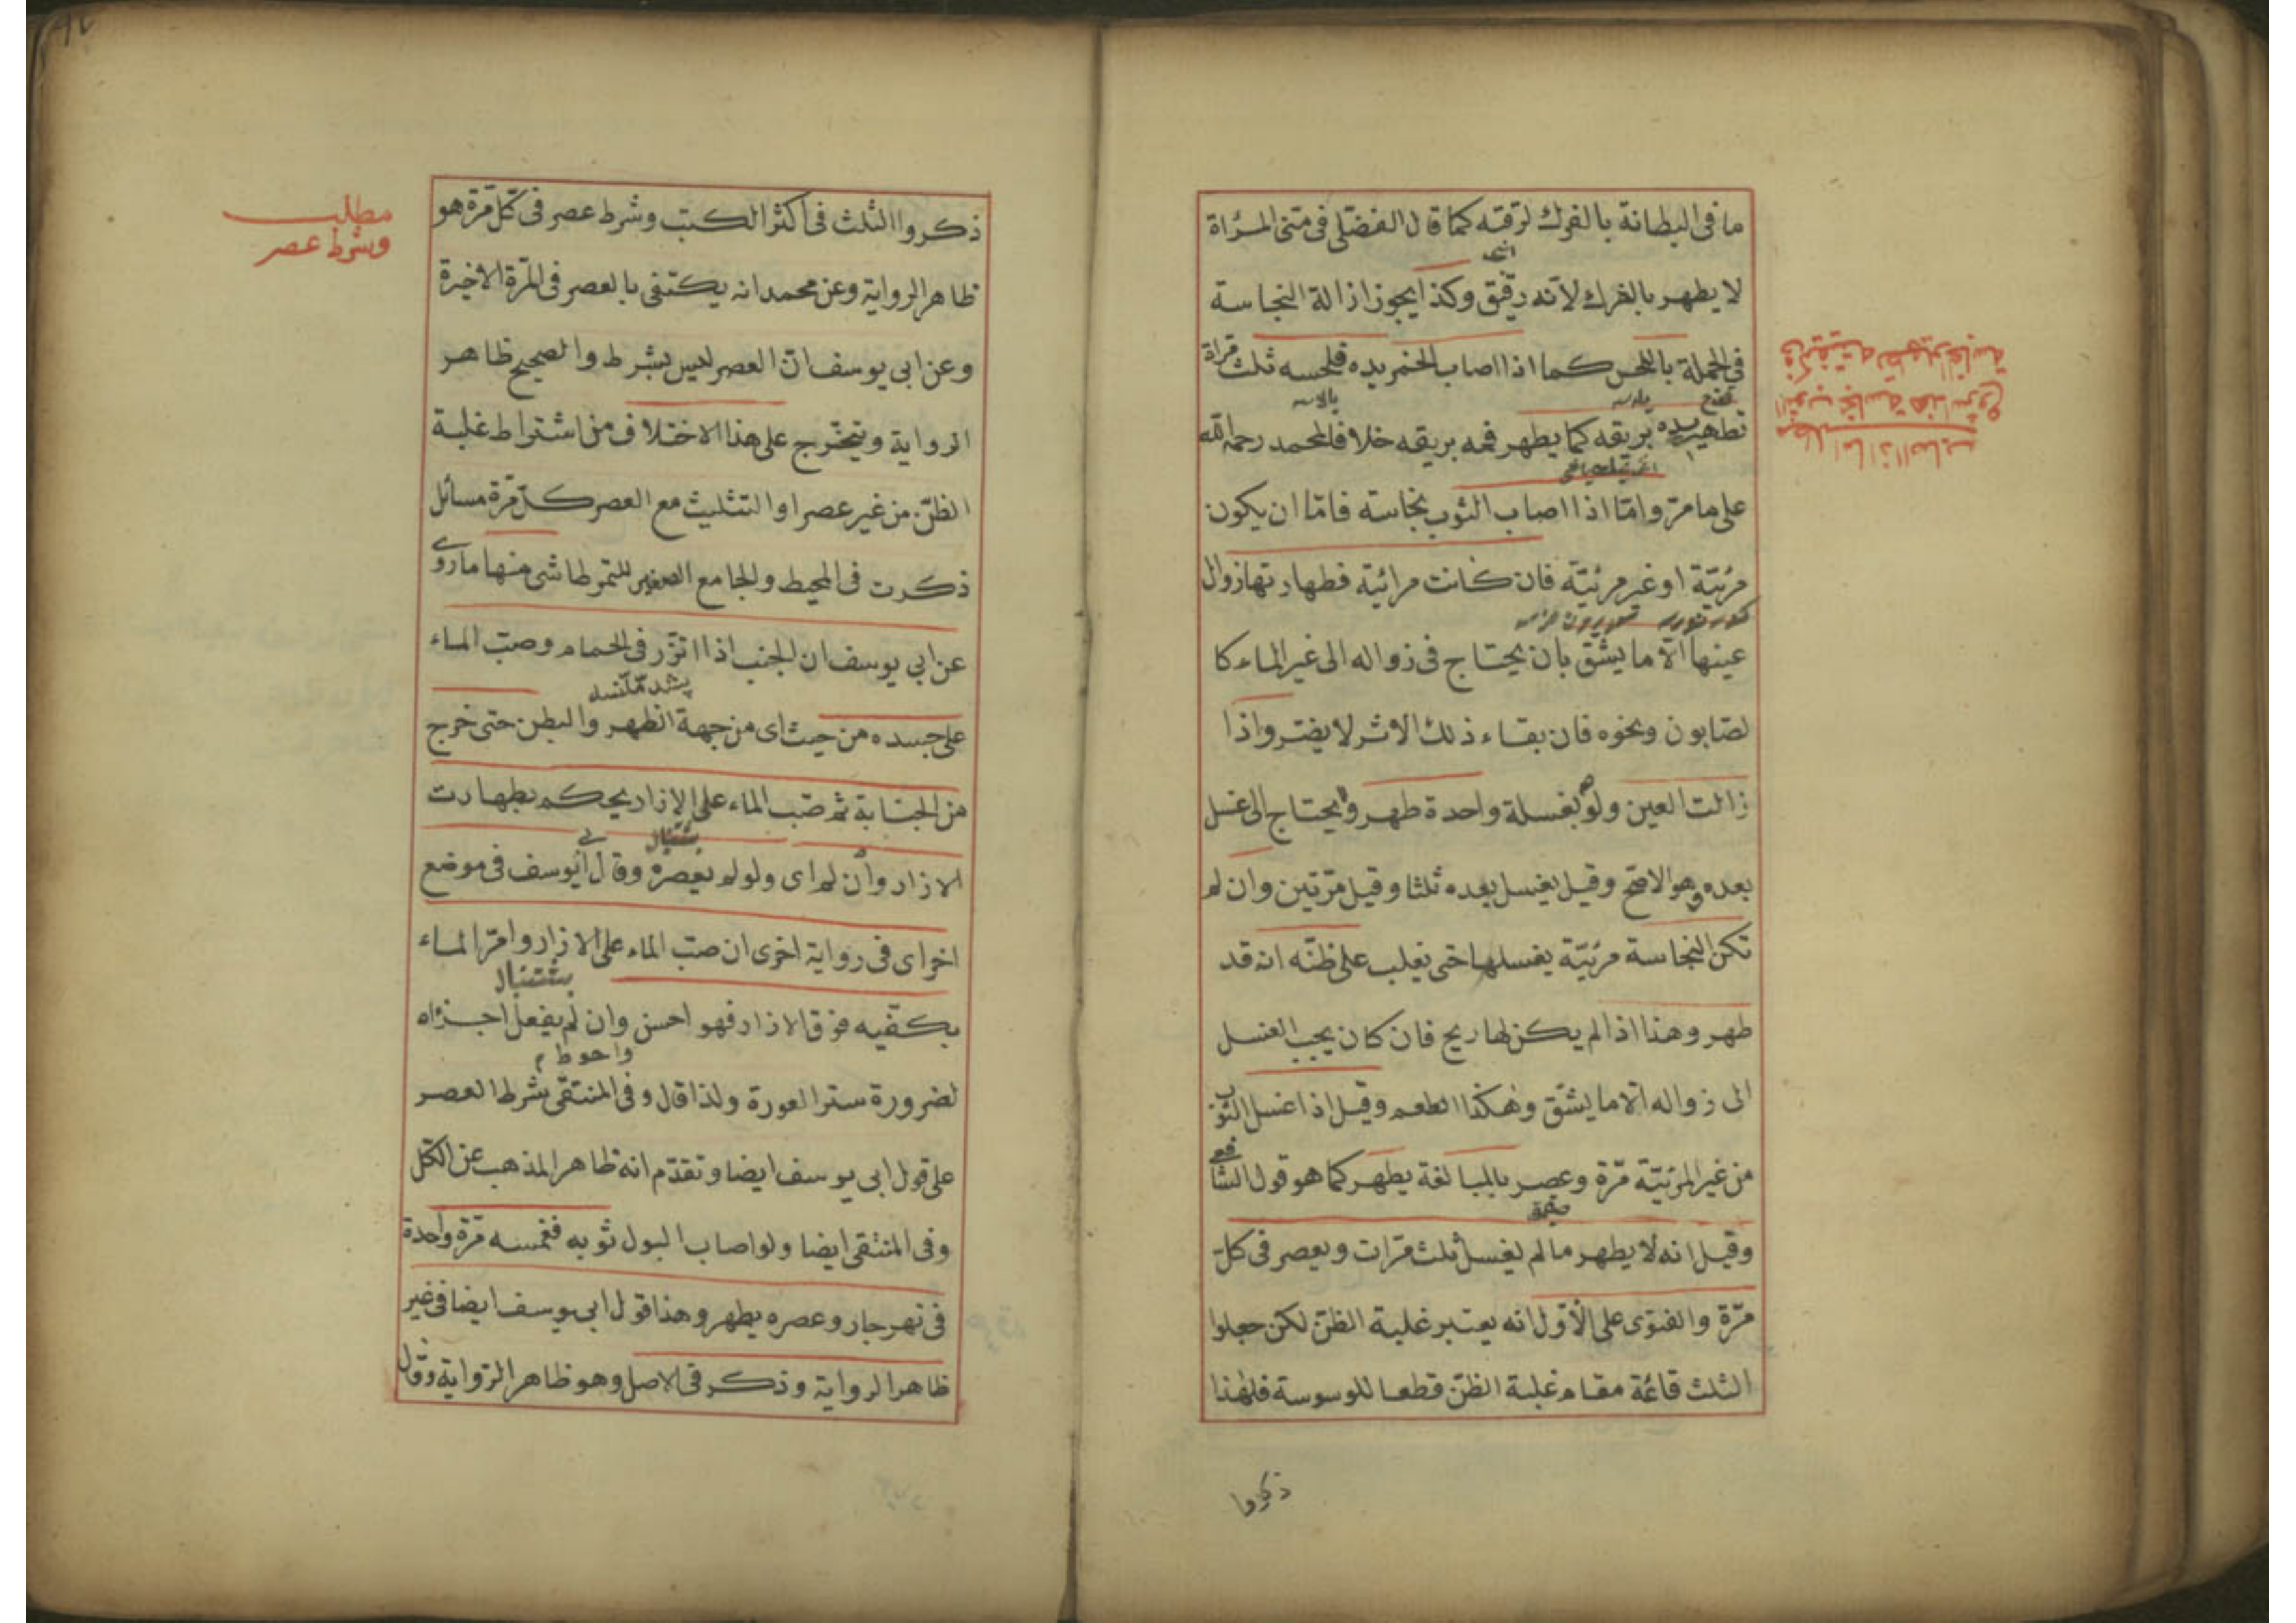 ما فى البطانة بالفرك لرقته كما قال الفضلى فى منى المرأة
لا يطهر بالفرك لانه رقيق وكذا يجوز ازالة النجاسة
فى الجملة باللحس كما اذا اصاب الخمر يده فلحسه ثلث مراة
تطهر يده بريقه كما يطهر فمه بريقه خلافا لمحمد رحمه الله
على ما مر واما اذا اصاب الثوب نجاسة فاما ان يكون
مرئية او غير مرئية فان كانت مرائية فطهارتها زوال
عينها الا ما يشق بان يحتاج فى زواله الى غير الماء كا
لصابون ونحوه فان بقاء ذلك الاثر لا يضر واذا
زالت العين ولو بغسلة واحدة طهر ولا يحتاج الى غسل
بعده وهو الاصح وقيل يغسل بعده ثلثا وقيل مرتين وان لم
تكن النجاسة مرئية يغسلها حتى يغلب على ظنه انه قد
طهر وهذا اذا لم يكن لها ريح فان كان يجب الغسل
الى زواله الا ما يشق وهكذا الطعم وقيل اذا غسل الثوب
من غير المرئية مرة وعصر بالمبالغة يطهر كما هو قول الشافعى
وقيل انه لا يطهر ما لم يغسل ثلث مرات ويعصر فى كل
مرة والفتوى على الاول انه يعتبر غلبة الظن لكن جعلوا
الثلث قائمة مقام غلبة الظن قطعا للوسوسة فلهذا
ذكروا
مطلب اما اذا اصاب
الثوب نجاسة هذا شروع
فى كيفيته تطهير النجاسة
مطلب
وشرط عصر
ذكروا الثلث فى اكثر الكتب وشرط عصر فى كل مرة هو
ظاهر الرواية وعن محمد انه يكتفى بالعصر فى المرة الاخيرة
وعن ابى يوسف ان العصر ليس بشرط والصحيح ظاهر
الرواية ويتخرج على هذا الاختلاف من اشتراط غلبة
الظن من غير عصر او التثليث مع العصر كل مرة مسائل
ذكرت فى المحيط والجامع الصغير للتمرطاشى منها ما روى
عن ابى يوسف ان الجنب اذا اتزر فى الحمام وصب الماء
على جسده من حيث اى من جهة الظهر والبطن حتى خرج
من الجنابة ثم صب الماء على الازار يحكم بطهارت
الازار وان لم اى ولو لم يعصره وقال ابو يوسف فى موضع
اخر اى فى رواية اخرى ان صب الماء على الازار وامر الماء
بكفيه فوق الازار فهو احسن وان لم يفعل اجزاه
واحوط
لضرورة ستر العورة ولذا قال وفى المنتقى شرط العصر
على قول ابى يوسف ايضا وتقدم انه ظاهر المذهب عن الكل
وفى المنتقى ايضا ولو اصاب البول ثوبه فغمسه مرة واحدة
فى نهر جار وعصره يطهر وهذا قول ابى يوسف ايضا فى غير
ظاهر الرواية وذكر فى الاصل وهو ظاهر الرواية وقال